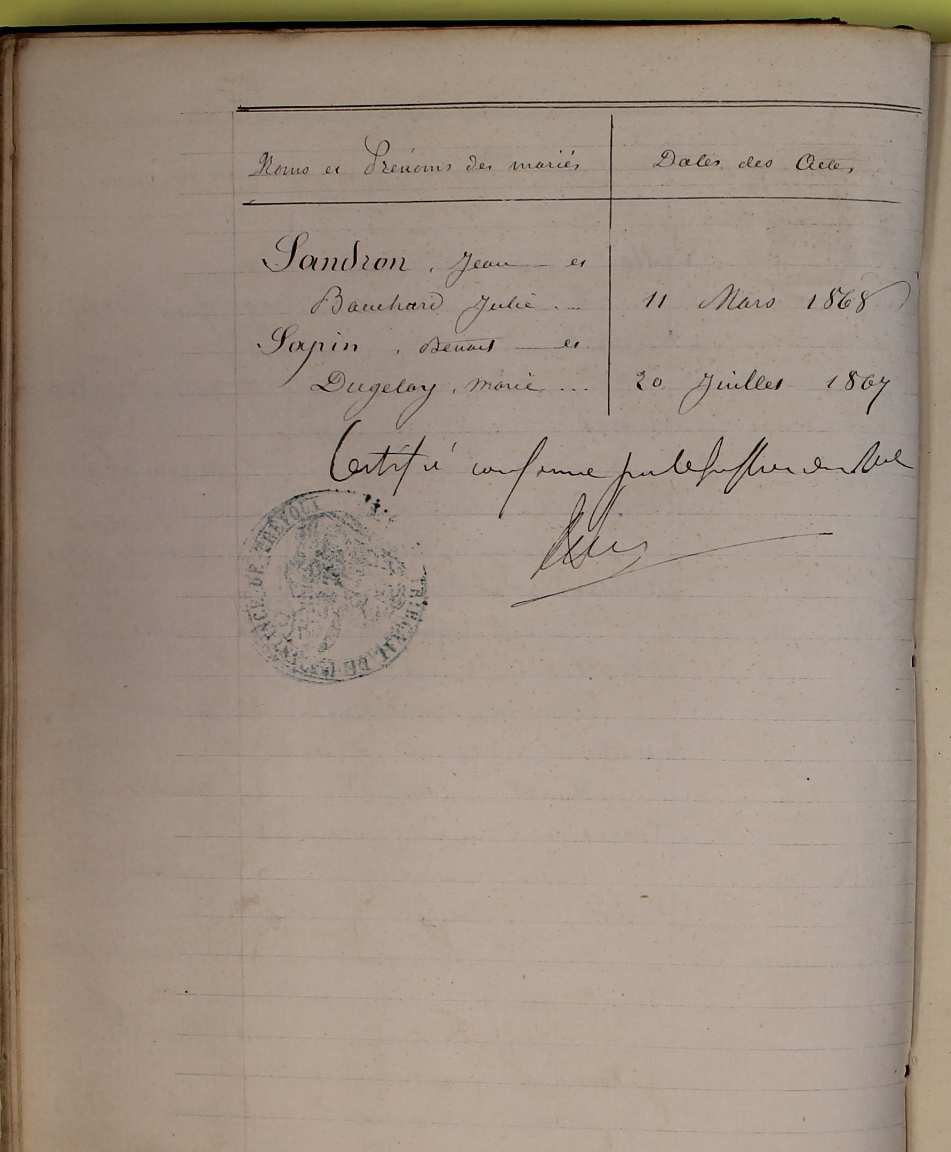 Noms et Prénoms des mariés
Dates des Actes
Sandron, Jean et
Bouchard Julie ... 11 Mars 1868
Sapin, Benoit et
Dugelay, Marie ... 20 Juillet 1867
Certifié conforme par le Greffier
TRIBUNAL DE 1ÈRE INSTANCE DE TRÉVOUX